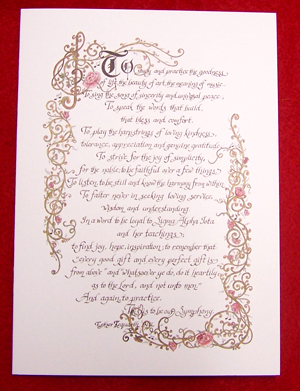 To study and practice the goodness
of life, the beauty of art, the meaning of music
To sing the song of sincerity and universal peace;
To speak the words that build,
that bless and comfort.
To play the harpstrings of loving kindness,
tolerance, appreciation and genuine gratitude.
To strive for the joy of simplicity,
for the noble, to be faithful over a few things.
To listen, to be still and know the harmony from within.
To falter never in seeking loving service,
wisdom and understanding.
In a word to be loyal to Sigma Alpha Iota
and her teachings;
to find joy, hope, inspiration to remember that
"every good gift and every perfect gift is
from above" and "whatsoever ye do, do it heartily
as to the Lord, and not unto men."
And again to practice.
This is to be our Symphony.
Esther